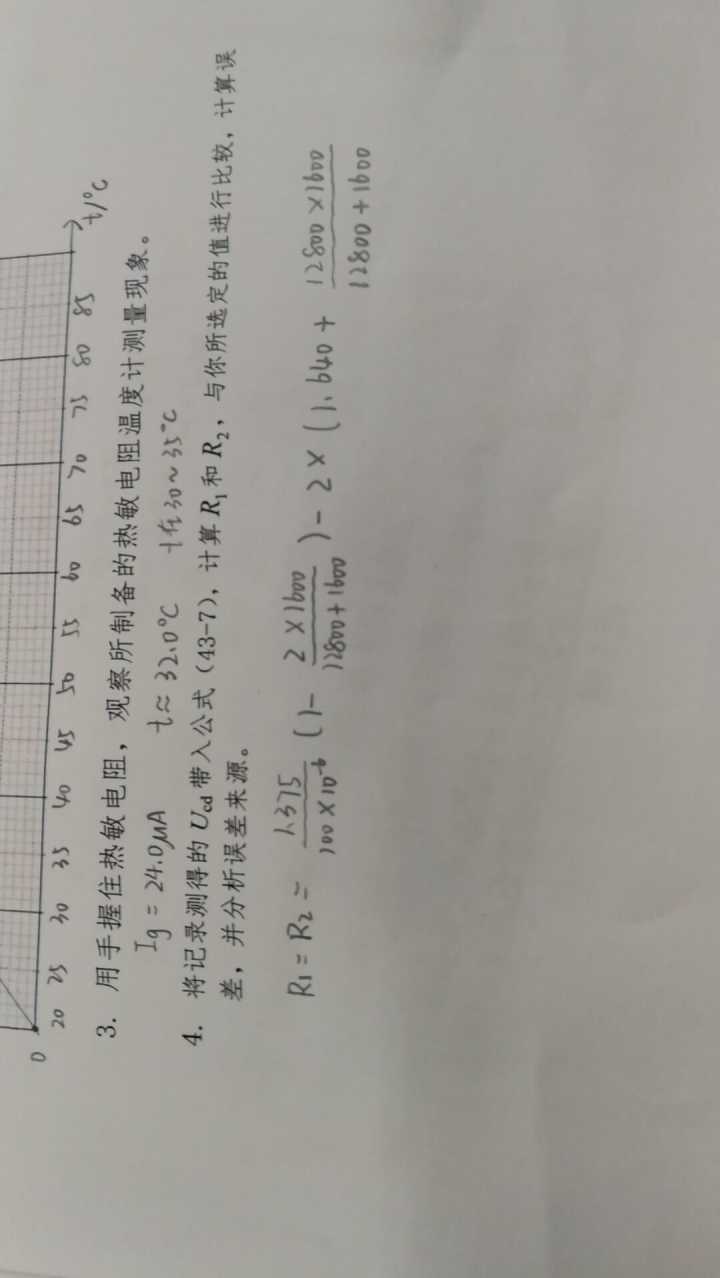 0 20 25 30 35 40 45 50 55 60 65 70 75 80 85 t/°C
3. 用手握住热敏电阻，观察所制备的热敏电阻温度计测量现象。
Ig = 24.0μA t≈32.0°C t在30~35°C
4. 将记录测得的 Ucd 带入公式（43-7），计算 R1 和 R2，与你所选定的值进行比较，计算误
差，并分析误差来源。
R1 = R2 = 1.375 / 100×10⁻⁶ (1 - 2×1600 / 12800+1600) - 2×(1.640 + 12800×1600 / 12800+1600